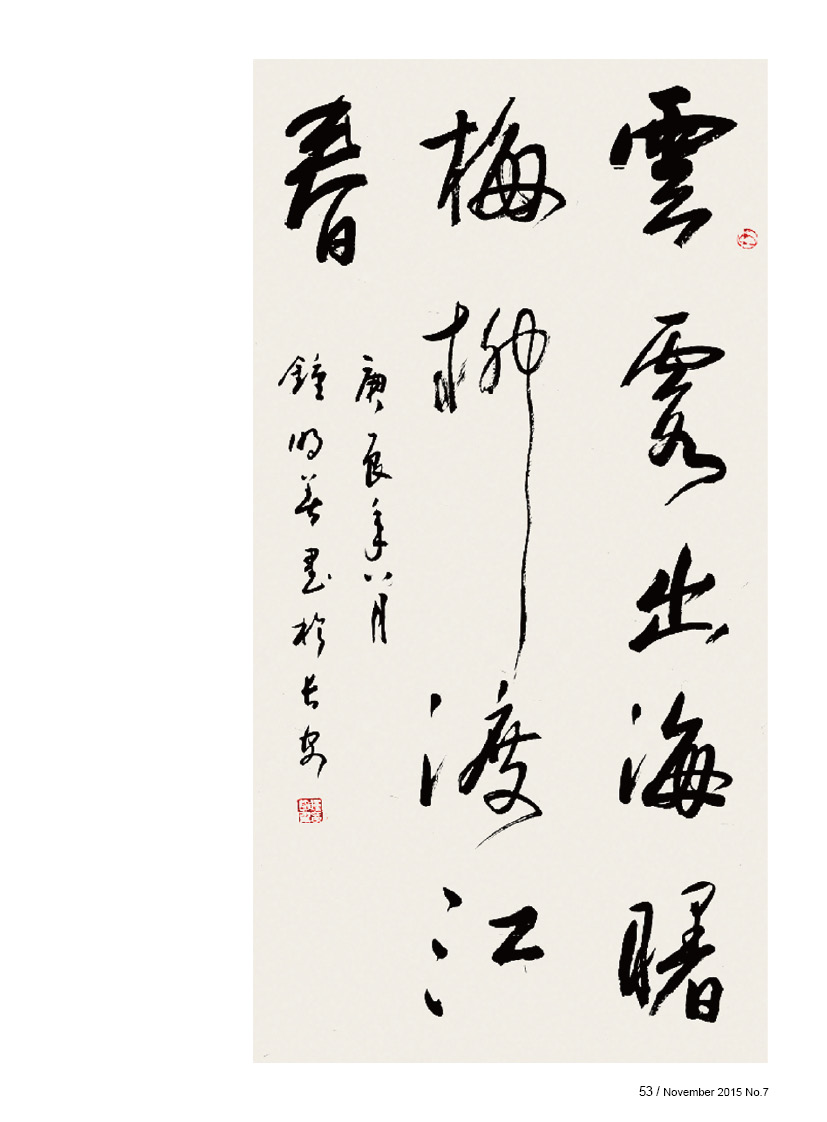 雲霞出海曙
梅柳渡江
春
庚辰年八月
鍾明善書於長安
53 / November 2015 No.7